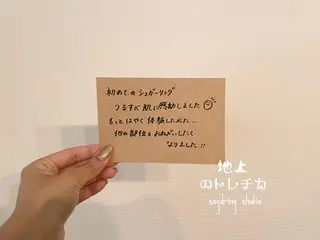 初めてのシュガーリング
つるすべ肌に感動しました
もっとはやく体験したかた...
他の部位もおねがいしたく
なりました!!
地上
のトレチカ
sugaring studio